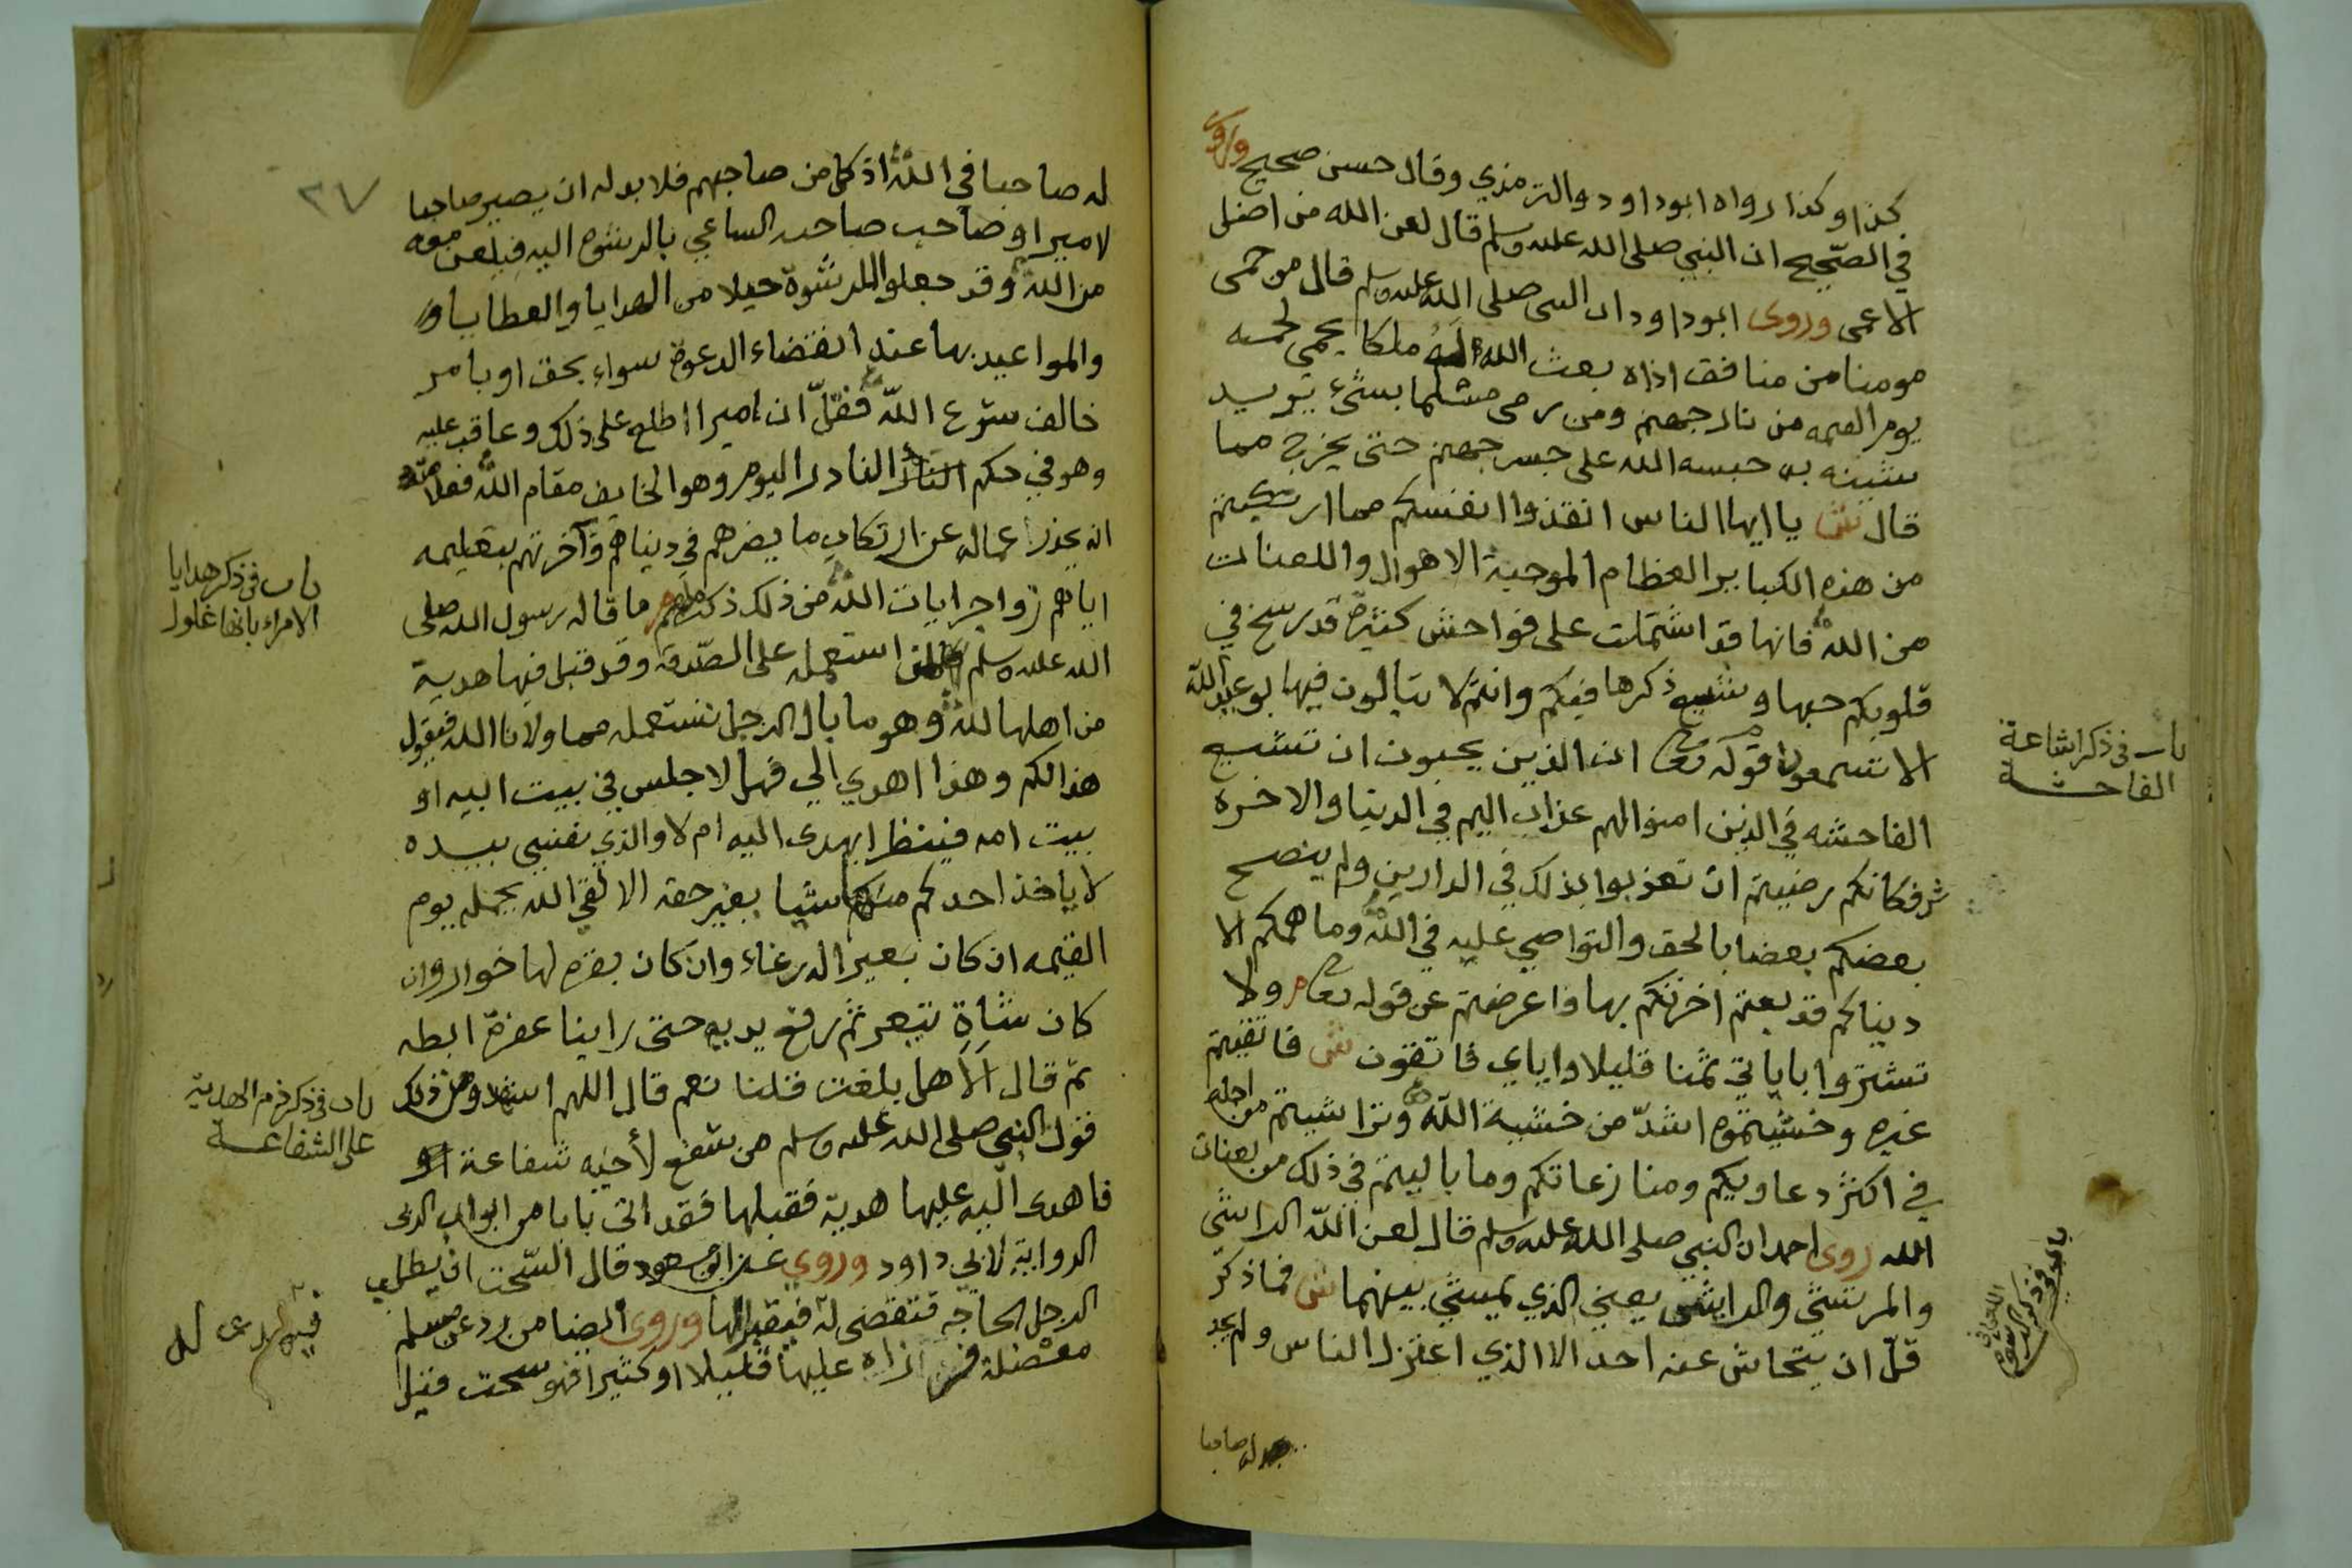 كذا وكذا رواه ابوداود والترمذي وقال حسن صحيح وروى
في الصحيح ان النبي صلى الله عليه وسلم قال لعن الله من اضل
الاعمى وروى ابوداود ان النبي صلى الله عليه وسلم قال من حمى
مومنا من منافق اذاه بعث الله اليه ملكا يحمي لحمه
يوم القيمه من نار جهنم ومن رمى مسلما بشيء يريد
شينه به حبسه الله على جسر جهنم حتى يخرج مما
قال ش يا ايها الناس انقذوا انفسكم مما ارتكبتم
من هذه الكباير العظام الموجبة الاهوال واللعنات
من الله فانها قد اشتملت على فواحش كثيرة قد رسخ في
قلوبكم حبها وشيع ذكرها فيكم وانتم لا تبالون فيها بوعيد الله
الا تسمعون قوله تعا ان الذين يحبون ان تشيع
الفاحشه في الذين امنوا لهم عذاب اليم في الدنيا والاخرة
ش فكانكم رضيتم ان تعذبوا بذلك في الدارين ولم ينصح
بعضكم بعضا بالحق والتواصي عليه في الله وما همكم الا
دنياكم قد بعتم اخرتكم بها فاعرضتم عن قوله تعا م ولا
تشتروا باياتي ثمنا قليلا واياي فاتقون ش فاتقيتم
غيره وخشيتموه اشد من خشية الله وتراشيتم من اجله
في اكثر دعاويكم ومنازعاتكم وما باليتم في ذلك من لعنات
الله روى احمد ان النبي صلى الله عليه وسلم قال لعن الله الراشي
والمرتشي والرايش يعني الذي يمشي بينهما ش فما ذكر
قل ان يتحاش عنه احد الا الذي اعتزل الناس ولم يجد
له صاحبا
باب في ذكر اشاعة
الفاحشة
باب في ذكر الرشوة
٣٧
له صاحبا في الله اذ كل من صاحبهم فلا بد له ان يصير صاحبا
لامير او صاحب صاحب الساعي بالرشوة اليه فيلعن معه
من الله وقد جعلوا للرشوة حيلا من الهدايا والعطايا و
والمواعيد بها عند انقضاء الدعوة سواء بحق او بامر
خالف شرع الله فقل ان اميرا اطلع على ذلك وعاقب عليه
وهو في حكم النادر اليوم وهو الخايف مقام الله فعلامته
انه يحذر عماله عن ارتكاب ما يضرهم في دنياهم وآخرتهم بتعليمه
اياهم زواجر ايات الله من ذلك ذكرهم ما قاله رسول الله صلى
الله عليه وسلم لمن استعمله على الصدقة وقد قبل فيها هدية
من اهلها لله وهو ما بال الرجل نستعمله مما ولانا الله فيقول
هذا لكم وهذا اهدي الي فهلا جلس في بيت ابيه او
بيت امه فينظر ايهدى اليه ام لا والذي نفسي بيده
لا ياخذ احدكم منكم شيا بغير حقه الا لقي الله يحمله يوم
القيمه ان كان بعيرا له رغاء وان كان بقره لها خوار وان
كان شاة تيعر ثم رفع يديه حتى راينا عفرة ابطه
ثم قال الا هل بلغت قلنا نعم قال اللهم اشهد ومن ذلك
قول النبي صلى الله عليه وسلم من شفع لأخيه شفاعة
فاهدى اليه عليها هدية فقبلها فقد اتى بابا من ابواب الربى
الرواية لابي داود وروي عن ابن مسعود قال السحت ان يطلب
الرجل الحاجه فتقضى له فيقبلها وروى ايضا من رد عن مسلم
مظلمة عليها قليلا او كثيرا فهو سحت فقيل
باب في ذكر هدايا
الامراء بانها غلول
باب في ذكر ذم الهدية
على الشفاعة